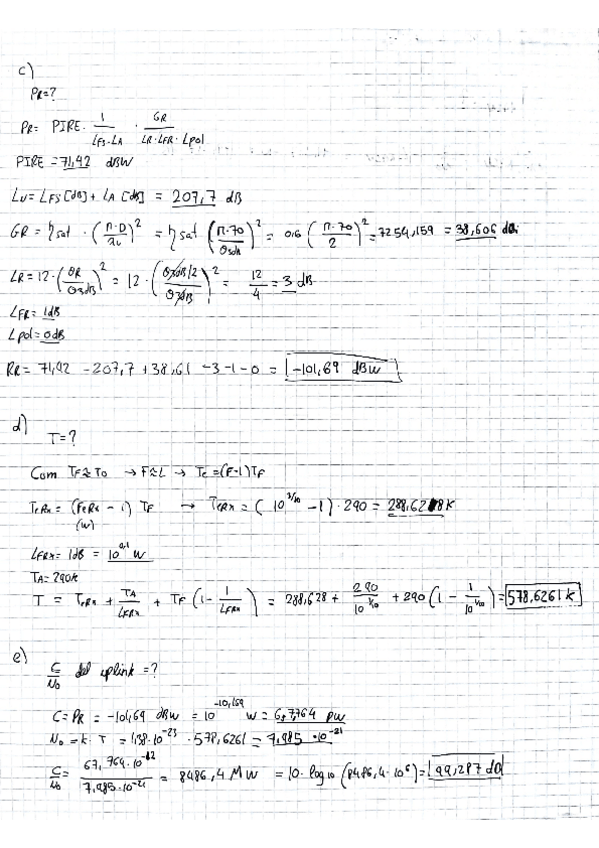 c)
PR=?
PR= PIRE · 1/(LFS·LA) · GR/(LR·LFR·Lpol)
PIRE = 71,42 dBW
LU = LFS [dB] + LA [dB] = 207,7 dB
GR = ηsat · (π·D/λu)² = ηsat (π·70/θ3dB)² = 0,6 (π·70/2)² = 7254,159 = 38,606 dBi
LR = 12·(θR/θ3dB)² = 12·((θ3dB/2)/θ3dB)² = 12/4 = 3 dB
LFR = 1dB
Lpol = 0dB
PR = 71,42 - 207,7 + 38,61 - 3 - 1 - 0 = -101,69 dBW
d)
T=?
Com TF≈T0 → F≈L → Te = (F-1)TF
TeRx = (FeRx - 1) TF → TeRx = (10^(3/10) - 1)·290 = 288,628K
(W)
LFRx = 1dB = 10^0,1 W
TA = 290K
T = TeRx + TA/LFRx + TF (1 - 1/LFRx) = 288,628 + 290/10^(1/10) + 290 (1 - 1/10^(1/10)) = 578,6261 K
e)
C/N0 del uplink =?
C = PR = -101,69 dBW = 10^-10,169 W = 67,764 pW
N0 = k· T = 1,38·10^-23 · 578,6261 = 7,985 ·10^-21
C/N0 = 67,764·10^-12/7,985·10^-21 = 8486,4 MW = 10·log10 (8486,4·10^6) = 99,287 dB